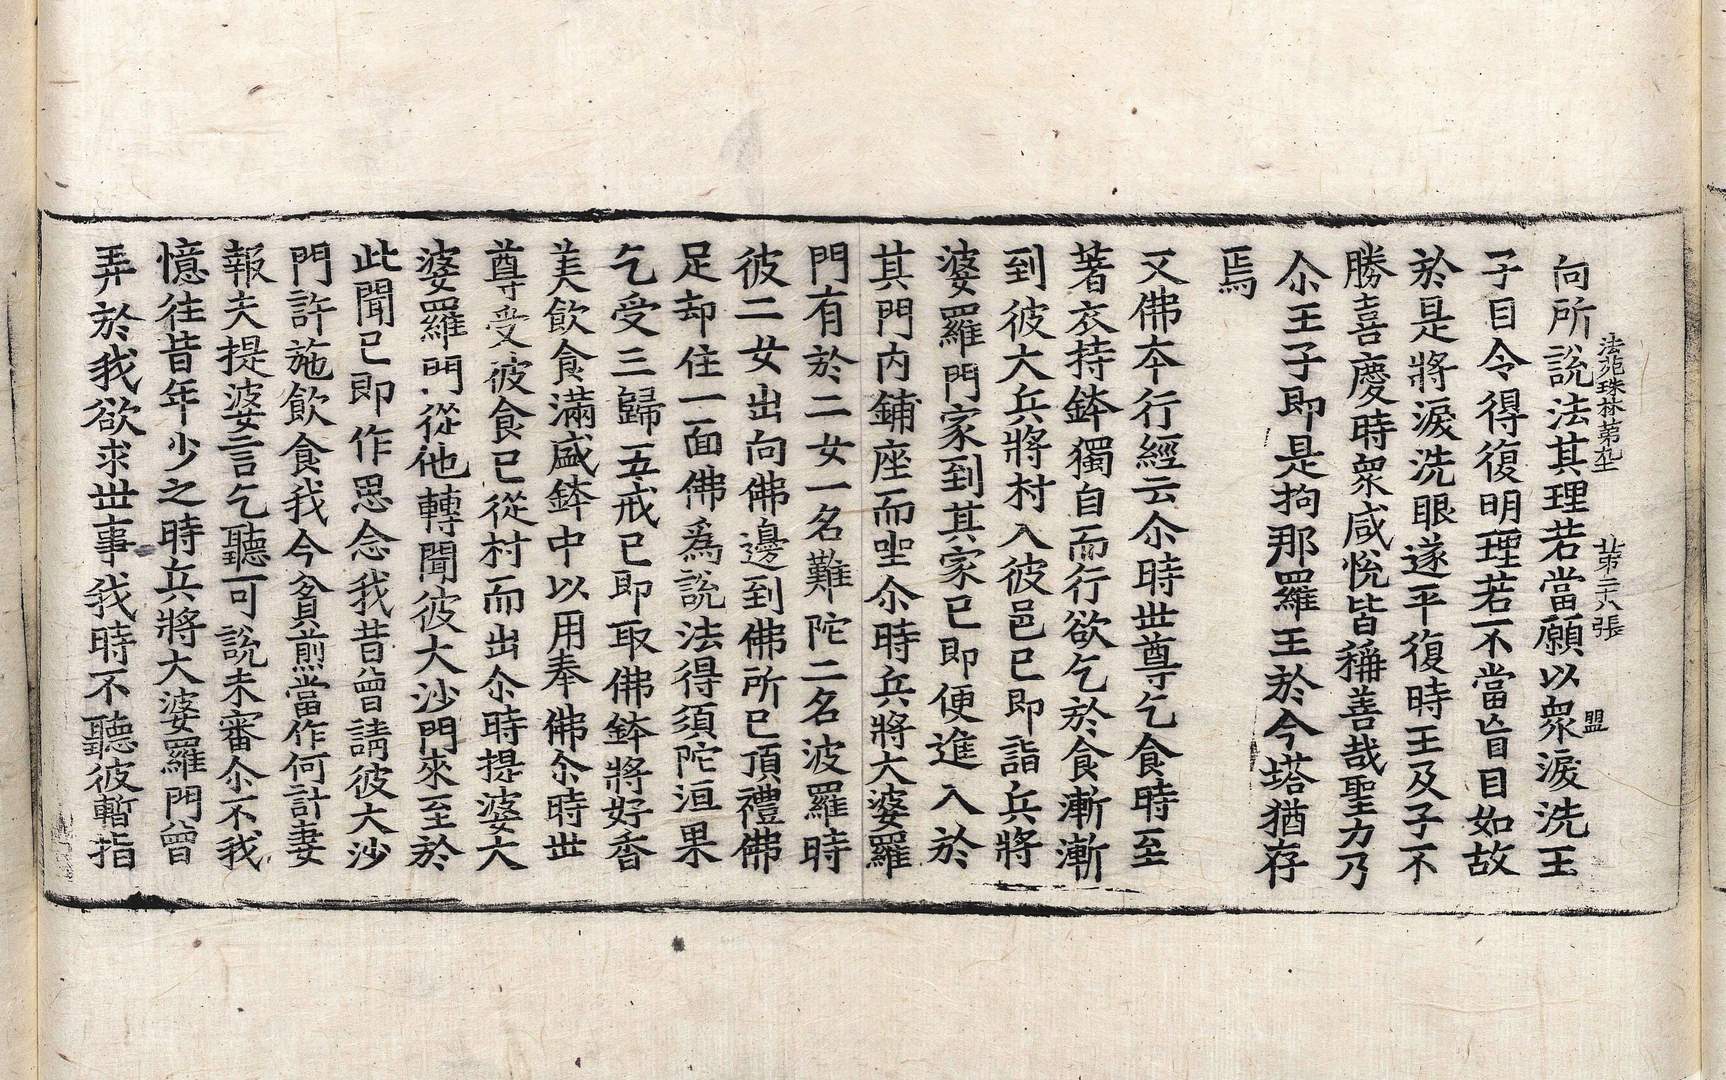 向所說法其理若當願以衆淚洗王
法苑珠林第九十一 第二十八張 盟
子目令得復明理若不當盲目如故
於是將淚洗眼遂平復時王及子不
勝喜慶時衆咸悅皆稱善哉聖力乃
尒王子即是拘那羅王於今塔猶存
焉
又佛夲行經云尒時世尊乞食時至
著衣持鉢獨自而行欲乞於食漸漸
到彼大兵將村入彼邑已即詣兵將
婆羅門家到其家已即便進入於
其門內鋪座而坐尒時兵將大婆羅
門有於二女一名難陀二名波羅時
彼二女出向佛邊到佛所已頂禮佛
足却住一面佛爲說法得須陀洹果
乞受三歸五戒已即取佛鉢將好香
美飮食滿盛鉢中以用奉佛尒時世
尊受彼食已從村而出尒時提婆大
婆羅門從他轉聞彼大沙門來至於
此聞已即作思念我昔曾請彼大沙
門許施飮食我今貧煎當作何計妻
報夫提婆言乞聽可說未審尒不我
憶往昔年少之時兵將大婆羅門曾
弄於我欲求世事我時不聽彼暫指